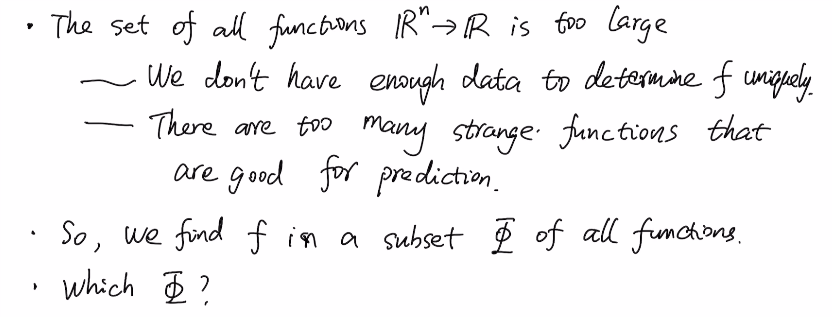 · The set of all functions ℝⁿ → ℝ is too large
— We don't have enough data to determine f uniquely.
— There are too many strange functions that
are good for prediction.
· So, we find f in a subset Φ of all functions.
· Which Φ?